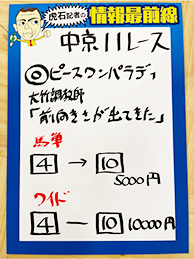 虎石記者の
情報最前線
中京11レース
◎ピースワンパラディ
大竹調教師
「前向きさが出てきた」
馬単
4 → 10
5000円
ワイド
4 — 10 10000円